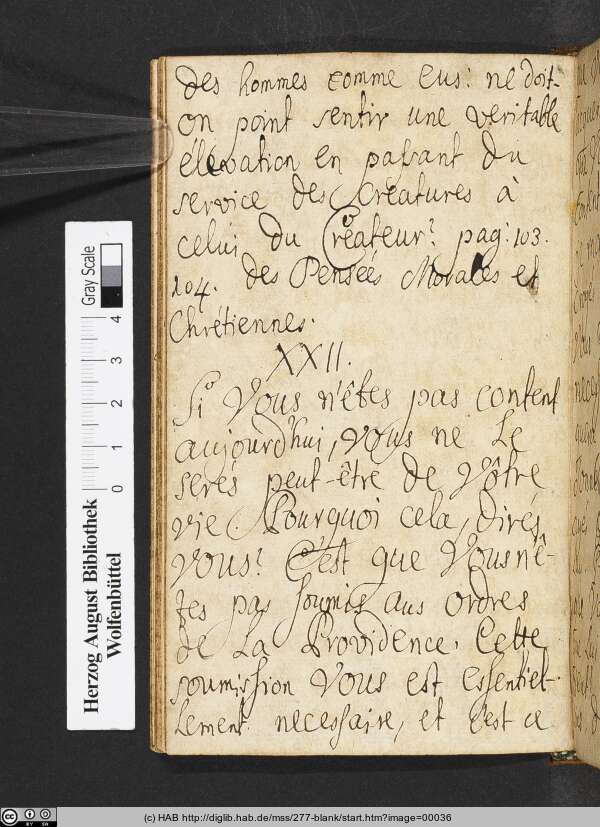 des hommes comme eus: ne doit-
on point sentir une veritable
élévation en passant du
service des Créatures à
celui du Créateur? pag: 103.
104. des Pensées Morales et
Chrétiennes.
XXII.
Si Vous n'êtes pas content
aujourd'hui, vous ne le
serés peut-être de Vôtre
vie. Pourquoi cela, dirés
vous? C'est que Vous n'ê-
tes pas soumis aus ordres
de la Providence. Cette
soumission Vous est essentiel-
lement necessaire, et c'est ce
Gray Scale
0 1 2 3 4
Herzog August Bibliothek
Wolfenbüttel
(c) HAB http://diglib.hab.de/mss/277-blank/start.htm?image=00036